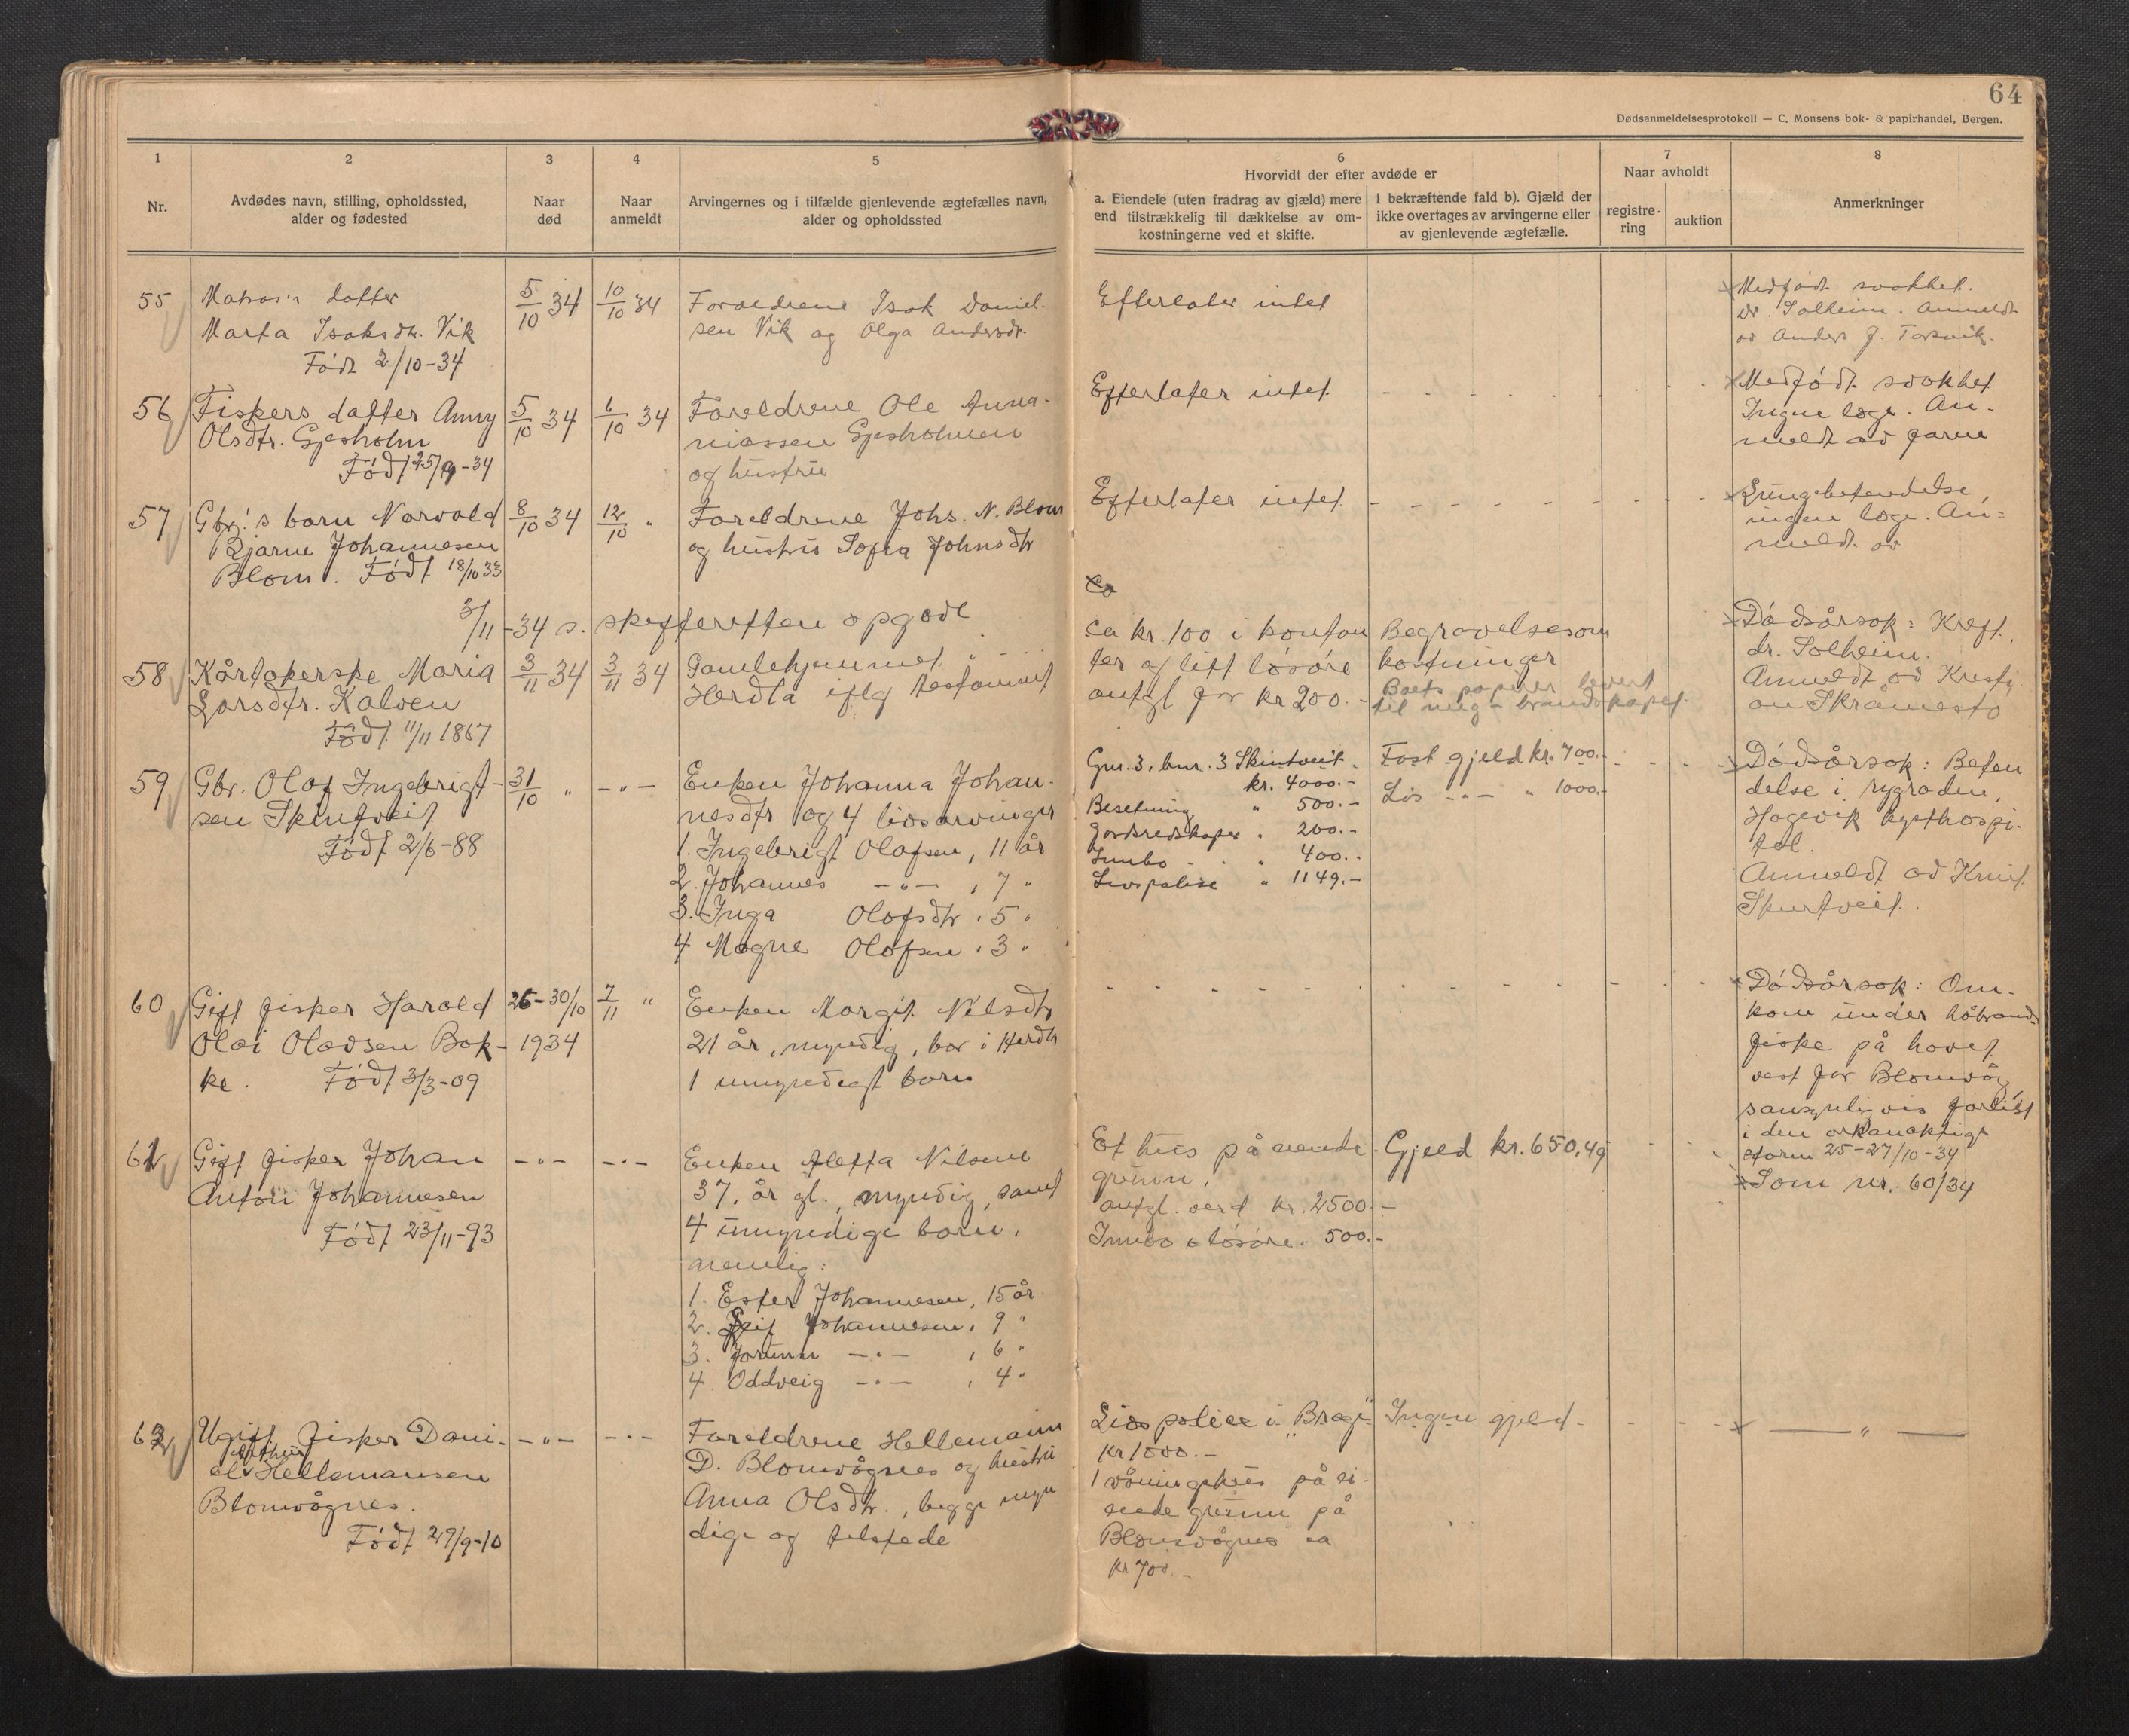 64
Dødsanmeldelsesprotokoll — C. Monsens bok- & papirhandel, Bergen.
1
2
3
4
5
6
7
8
Nr.
Avdødes navn, stilling, opholdssted,
alder og fødested
Naar
død
Naar
anmeldt
Arvingernes og i tilfælde gjenlevende ægtefælles navn,
alder og opholdssted
Hvorvidt der efter avdøde er
a. Eiendele (uten fradrag av gjæld) mere
end tilstrækkelig til dækkelse av om-
kostningerne ved et skifte.
I bekræftende fald b). Gjæld der
ikke overtages av arvingerne eller
av gjenlevende ægtefælle.
Naar avholdt
registre-
ring
auktion
Anmerkninger
55
datter
Marta Isaksdtr. Vik
Født 2/10-34
5/10 34
10/10 34
Foreldrene Isak Daniel-
sen Vik og Olga Andersdr.
Efterlater intet
Medfødt svakhet.
dr. Solheim. Anmeldt
av Anders J. Torsvik.
56
Fiskers datter Anny
Olsdtr. Gjesholm
Født 25/9-34
5/10 34
6/10 34
Foreldrene Ole Anna-
niassen Gjesholmen
og hustru
Efterlater intet.
Medfødt svakhet
Ingen læge. An-
meldt av faren
57
Gbr.'s barn Norvald
Bjarne Johannesen
Blom. Født 18/10 33
8/10 34
12/10 "
Foreldrene Johs. N. Blom
og hustru Sofia Johnsdtr
Efterlater intet
Lungebetendelse,
ingen læge. An=
meldt av
3/11-34 s. skifteretten opgave
58
Kårtakerske Maria
Larsdtr. Kalven
Født 11/11 1867
3/11 34
3/11 34
Gamlehjemmet
Herdla iflg testament
ca
ca kr. 100 i kontan
ter og litt løsøre
antgl for kr 200.-
Begravelsesom
kostninger
Boets papirer levert
til mig - brandskapet.
Dødsårsak: Kreft,
dr. Solheim.
Anmeldt av Kristi
an Skråmestø
59
Gbr. Olaf Ingebrigt-
sen Skintveit
Født 2/6-88
31/10 "
-"-
Enken Johanna Johan-
nesdtr og 4 livsarvinger
1. Ingebrigt Olafsen, 11 år
2. Johannes -"- , 7 "
3. Inga Olafsdtr. 5 "
4 Magne Olafsen . 3 "
Gnr. 3, bnr. 3 Skintveit.
kr. 4000.-
Besetning " 500.-
Gardsredskaper " 200.-
Innbo " 400.-
Livspolise " 1149.-
Fast gjeld kr. 700.-
Løs -"- " 1000.-
Dødsårsak: Beten
delse i rygraden,
Hagevik kysthospi-
tal.
Anmeldt av Knut
Skintveit.
60
Gift fisker Harald
Olai Olavsen Bak-
ke. Født 3/3-09
25-30/10
1934
7/11 "
Enken Margit Nilsdtr
21 år, myndig, bor i Herdla
1 umyndigt barn
Dødsårsak: Om-
kom under håbrand-
fiske på havet
vest for Blomvåg,
sansynligvis forlist
i den orkanaktige
storm 25-27/10-34
61
Gift fisker Johan
Anton Johannesen
Født 23/11-93
-"-
-"-
Enken Aletta Nilsine
37. år gl., myndig, samt
4 umyndige barn,
nemlig:
1. Ester Johannesen, 15 år
2. Leif Johannesen, 9 "
3. Jorunn -"- , 6 "
4 Oddveig -"- , 4 "
Et hus på eiende
grunn,
antgl. verd kr. 2500.-
Innbo o løsøre " 500.-
Gjeld kr. 650,49
Som nr. 60/34
62
Ugift fisker Dani-
el Arthur Hellemansen
Blomvågnes.
Født 29/9-10
-"-
-"-
Foreldrene Hellemann
D. Blomvågnes og hustru
Anna Olsdtr., begge myn
dige og tilstede
Livspolise i "Brage"
kr 1000.-
1 våningshus på ei-
ende grunn på
Blomvågnes ca
kr 700.-
Ingen gjeld-
— " —